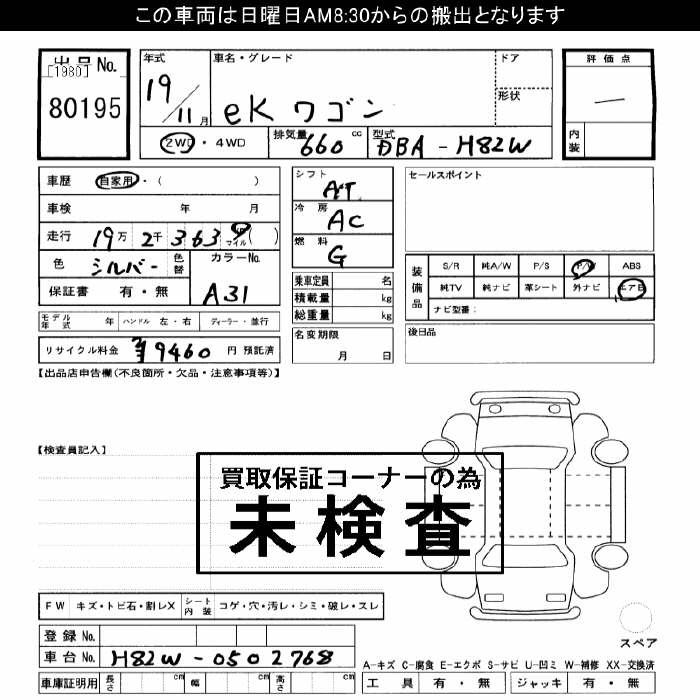 この車両は日曜日AM8:30からの搬出となります
出品No.
[1980]
80195
年式 車名・グレード ドア
19/11月 eKワゴン 形状
2WD・4WD 排気量 660cc 型式 DBA-H82W
評価点
—
内装
車歴 自家用・( )
車検 年 月
走行 19万2千3639 マイル( )
色 シルバー 色替 カラーNo.
保証書 有・無 A31
モデル年式 年 ハンドル 左・右 ディーラー・並行
リサイクル料金 ¥9460 円 預託済
シフト AT
冷房 AC
燃料 G
乗車定員 名
積載量 kg
総重量 kg
名変期限
月 日
セールスポイント
装備品 S/R 純A/W P/S P/W ABS
純TV 純ナビ 革シート 外ナビ エアB
ナビ型番:
後日品
【出品店申告欄(不良箇所・欠品・注意事項等)】
【検査員記入】
買取保証コーナーの為
未検査
FW キズ・トビ石・割レX シート内装 コゲ・穴・汚レ・シミ・破レ・スレ
登録No.
車台No. H82W-0502768
車庫証明用 長さ cm 幅 cm 高さ cm
スペア
A-キズ C-腐食 E-エクボ S-サビ U-凹ミ W-補修 XX-交換済
工具 有・無 ジャッキ 有・無